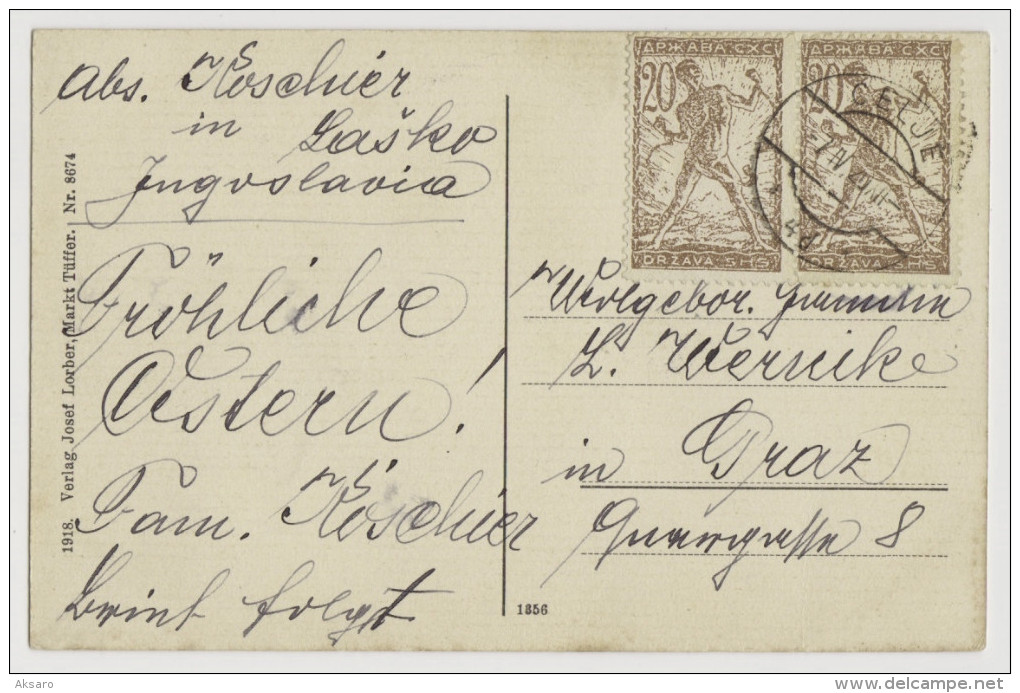 Abs. Koschier
in Laško
Jugoslavia
Fröhliche
Ostern!
Fam. Koschier
Brief folgt
1918. Verlag Josef Lorber, Markt Tüffer. Nr. 8674
ДРЖАВА СХС
20
DRŽAVA SHS
ДРЖАВА СХС
20
DRŽAVA SHS
CELJE
Wolgebor.
L. Wernike
in Graz
8
1356
Aksaro